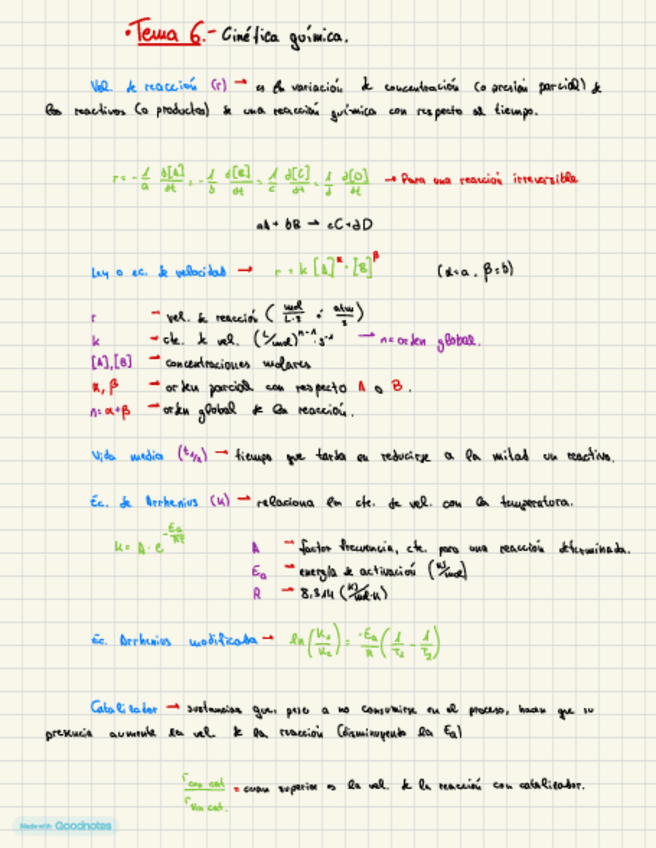 • Tema 6.- Cinética química.
Vel. de reacción (r) → es la variación de concentración (o presión parcial) de
los reactivos (o productos) de una reacción química con respecto al tiempo.
r = -1/a d[A]/dt = -1/b d[B]/dt = 1/c d[C]/dt = 1/d d[D]/dt → Para una reacción irreversible
aA + bB → cC + dD
Ley o ec. de velocidad → r = k [A]^α · [B]^β (α=a, β=b)
r → vel. de reacción (mol/L·s ó atm/s)
k → cte. de vel. (L/mol)^n-1 · s^-1 → n = orden global.
[A],[B] → concentraciones molares
α, β → orden parcial con respecto A o B.
n = α+β → orden global de la reacción.
Vida media (t1/2) → tiempo que tarda en reducirse a la mitad un reactivo.
Ec. de Arrhenius (k) → relaciona la cte. de vel. con la temperatura.
k = A · e^-Ea/RT
A → factor frecuencia, cte. para una reacción determinada.
Ea → energía de activación (KJ/mol)
R → 8,314 (KJ/mol·K)
Ec. Arrhenius modificada → ln(K1/K2) = -Ea/R (1/T1 - 1/T2)
Catalizador → sustancias que, pese a no consumirse en el proceso, hacen que su
presencia aumente la vel. de la reacción (disminuyendo la Ea)
r con cat / r sin cat. = cuan superior es la vel. de la reacción con catalizador.
Made with Goodnotes